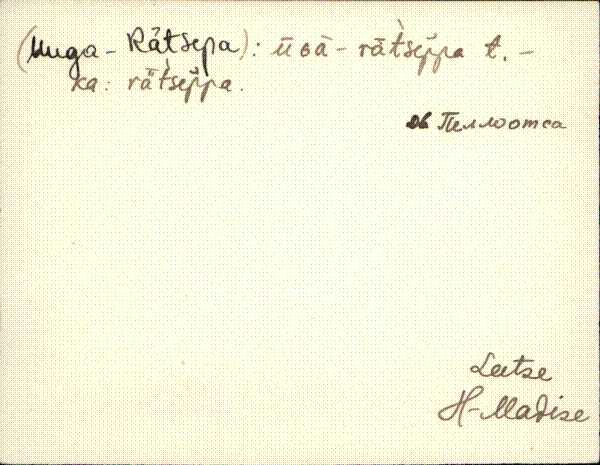 (Uuga - Rätsepa): ūɢà - rätsèppa t. -
ka: rätsèppa.
Пиллоотса
Leetse
H-Madise